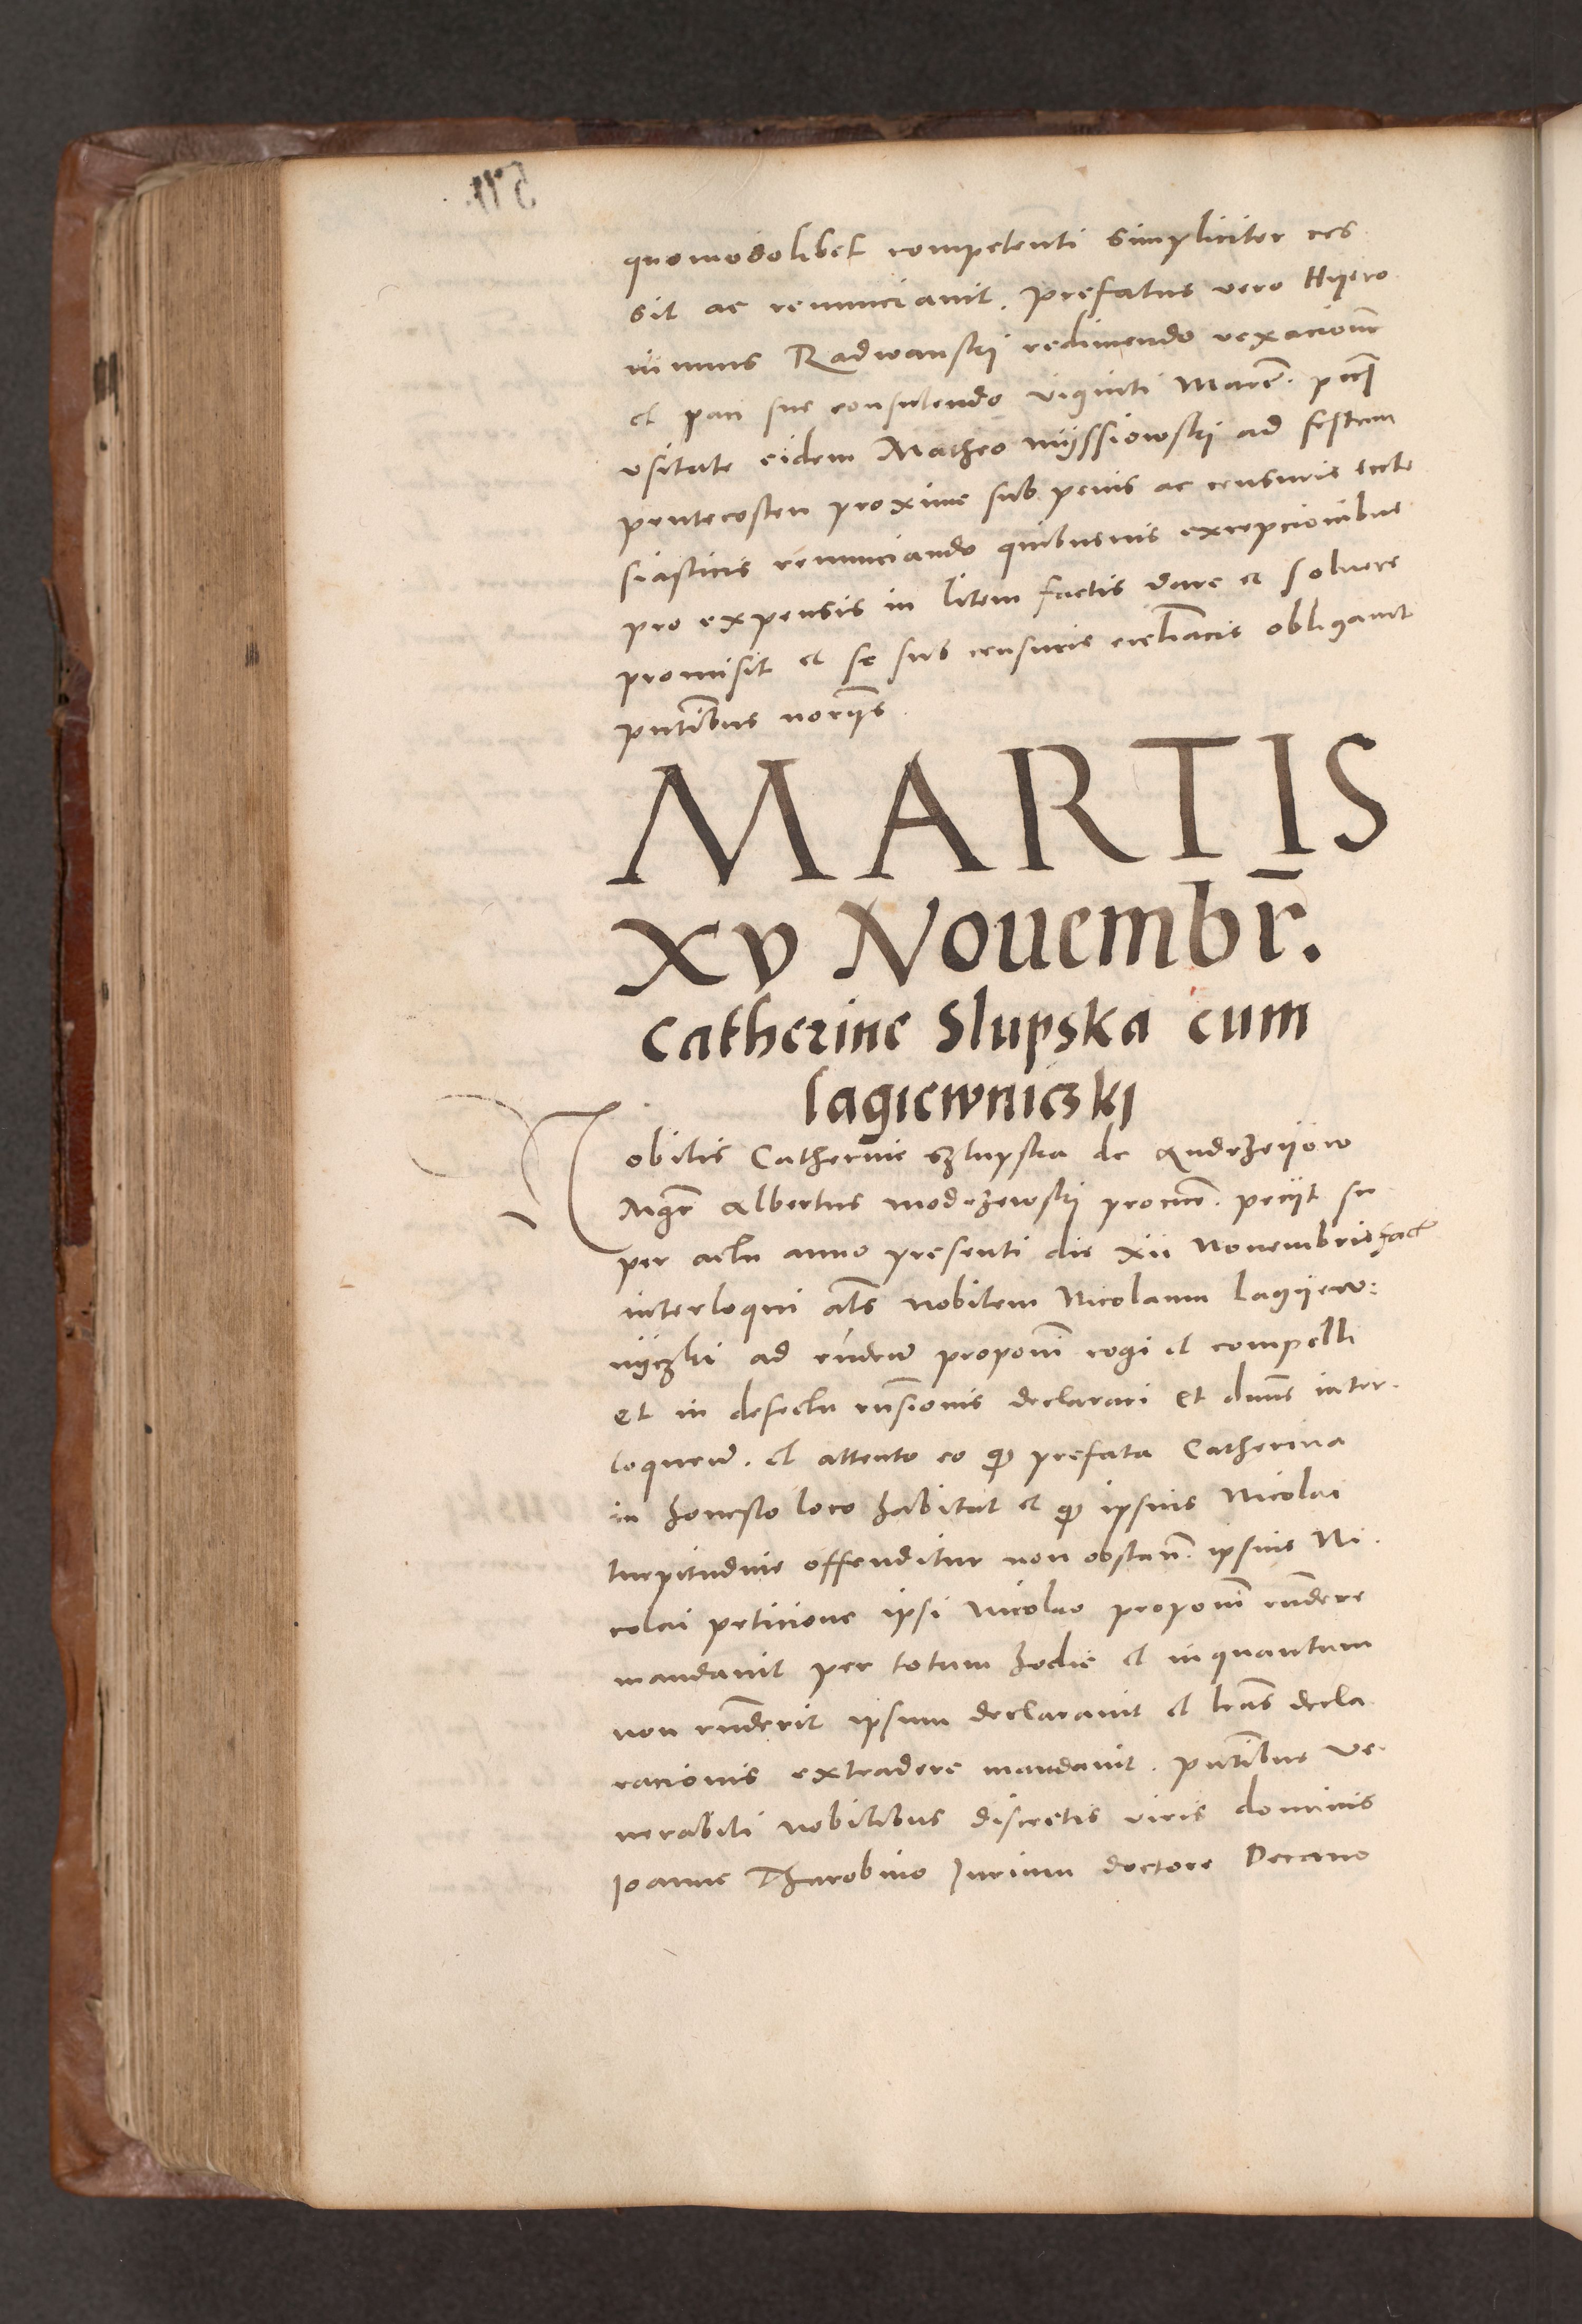 quomodolibet competenti simpliciter ces
sit ac renunciavit. prefatus vero Hyero
nimus Radwanskij redimendo vexacionē
et paci sue consulendo viginti Marcē.
usitate eidem Matheo mijssiowskij ad festum
pentecosten proxime sub penis ac censuris eccle
siasticis renunciando quibusvis excepcionibus
pro expensis in litem factis dare et soluere
promisit et se sub censuris eccliacis obligauit
pntibus noriis.
MARTIS
XV Nouembr̄.
Catherine Slupska cum
lagiewniczki
Nobilis Catherine Szlupska de Andrzeyow
Mgr̄ Albertus modrzewskij procur. peciit su
per actu anno presenti die xii Nouembris fact
interloqui als nobilem Nicolaum Lagyew:
nyczki ad rndēm proponi cogi et compelli
et in defectu rnsionis declarari Et dnns inter.
loquēm. et attento eo qp prefata Catherina
in honesto loco habitat et qp ipsius Nicolai
turpitudine offenditur non obstan̄. ipsius Ni.
colai peticione ipsi Nicolao proponi rndere
mandauit per totum hodie et inquantum
non rnderit ipsum declarauit et lras decla
racionis extradere mandauit. pntibus ve
nerabili nobilibus discretis viris dominis
Joanne Tharobino Jurium doctore Decano